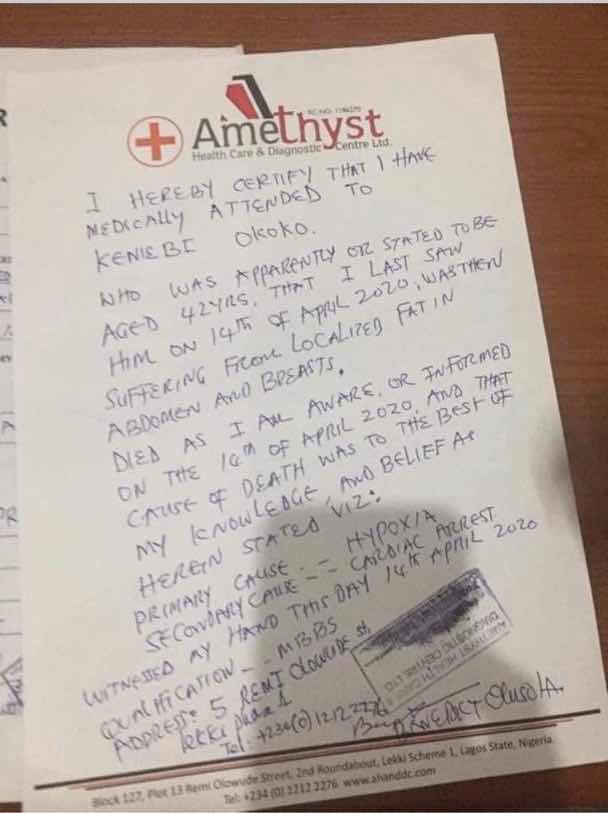 RC NO. 1186270
Amethyst
Health Care & Diagnostic Centre Ltd.
I HEREBY CERTIFY THAT I HAVE
MEDICALLY ATTENDED TO
KENIEBI OKOKO.
WHO WAS APPARENTLY OR STATED TO BE
AGED 42YRS. THAT I LAST SAW
HIM ON 14TH OF APRIL 2020, WAS THEN
SUFFERING FROM LOCALIZED FAT IN
ABDOMEN AND BREASTS.
DIED AS I AM AWARE, OR INFORMED
ON THE 14TH OF APRIL 2020, AND THAT
CAUSE OF DEATH WAS TO THE BEST OF
MY KNOWLEDGE, AND BELIEF AS
HEREIN STATED VIZ:
PRIMARY CAUSE :- HYPOXIA
SECONDARY CAUSE -- CARDIAC ARREST
WITNESSED MY HAND THIS DAY 14TH APRIL 2020
QUALIFICATION -- MBBS
ADDRESS: 5 REMI OLOWUDE St,
lekki phase 1
Tel: +234(0)1212 2276
BENEDICT OLUSOLA.
AMETHYST HEALTH CARE &
DIAGNOSTIC CENTRE LTD
Block 127, Plot 13 Remi Olowude Street, 2nd Roundabout, Lekki Scheme 1, Lagos State, Nigeria.
Tel: +234 (0) 1212 2276 www.ahanddc.com